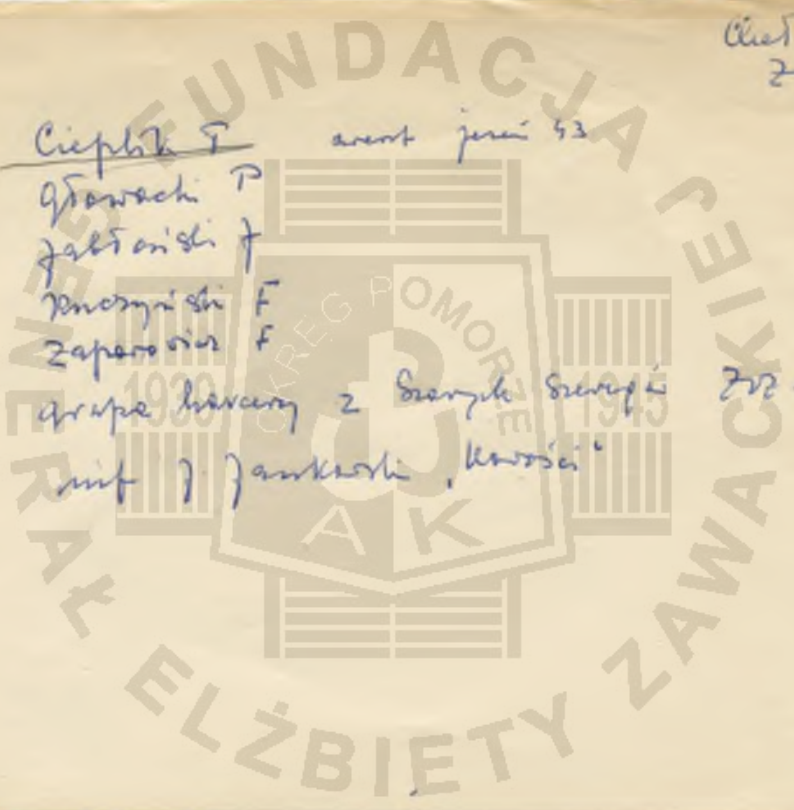 Cheł
Z
Cieplik T areszt jesień 43
Głowacki P
Jabłoński J
Kuczyński F
Zaporowicz F
grupa harcerzy z Szarych Szeregów ZWZ
inf J Jankowski „Nowości"
FUNDACJA GENERAŁ ELŻBIETY ZAWACKIEJ
OKRĘG POMORZE
1939 1945
AK